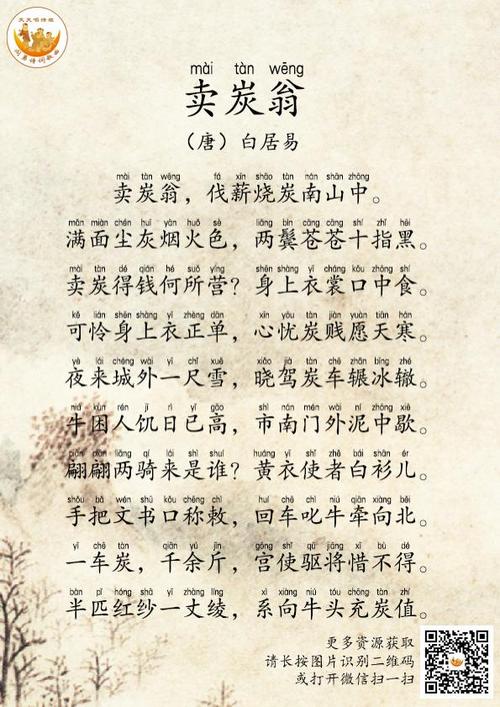 mài tàn wēng
卖炭翁
（唐）白居易
mài tàn wēng fá xīn shāo tàn nán shān zhōng
卖炭翁，伐薪烧炭南山中。
mǎn miàn chén huī yān huǒ sè liǎng bìn cāng cāng shí zhǐ hēi
满面尘灰烟火色，两鬓苍苍十指黑。
mài tàn dé qián hé suǒ yíng shēn shàng yī cháng kǒu zhōng shí
卖炭得钱何所营？身上衣裳口中食。
kě lián shēn shàng yī zhèng dān xīn yōu tàn jiàn yuàn tiān hán
可怜身上衣正单，心忧炭贱愿天寒。
yè lái chéng wài yì chǐ xuě xiǎo jià tàn chē zhǎn bīng zhé
夜来城外一尺雪，晓驾炭车辗冰辙。
niú kùn rén jī rì yǐ gāo shì nán mén wài ní zhōng xiē
牛困人饥日已高，市南门外泥中歇。
piān piān liǎng qí lái shì shuí huáng yī shǐ zhě bái shān ér
翩翩两骑来是谁？黄衣使者白衫儿。
shǒu bǎ wén shū kǒu chēng chì huí chē chì niú qiān xiàng běi
手把文书口称敕，回车叱牛牵向北。
yì chē tàn qiān yú jīn gōng shǐ qū jiāng xī bù dé
一车炭，千余斤，宫使驱将惜不得。
bàn pǐ hóng shā yí zhàng líng xì xiàng niú tóu chōng tàn zhí
半匹红纱一丈绫，系向牛头充炭值。
更多资源获取
请长按图片识别二维码
或打开微信扫一扫